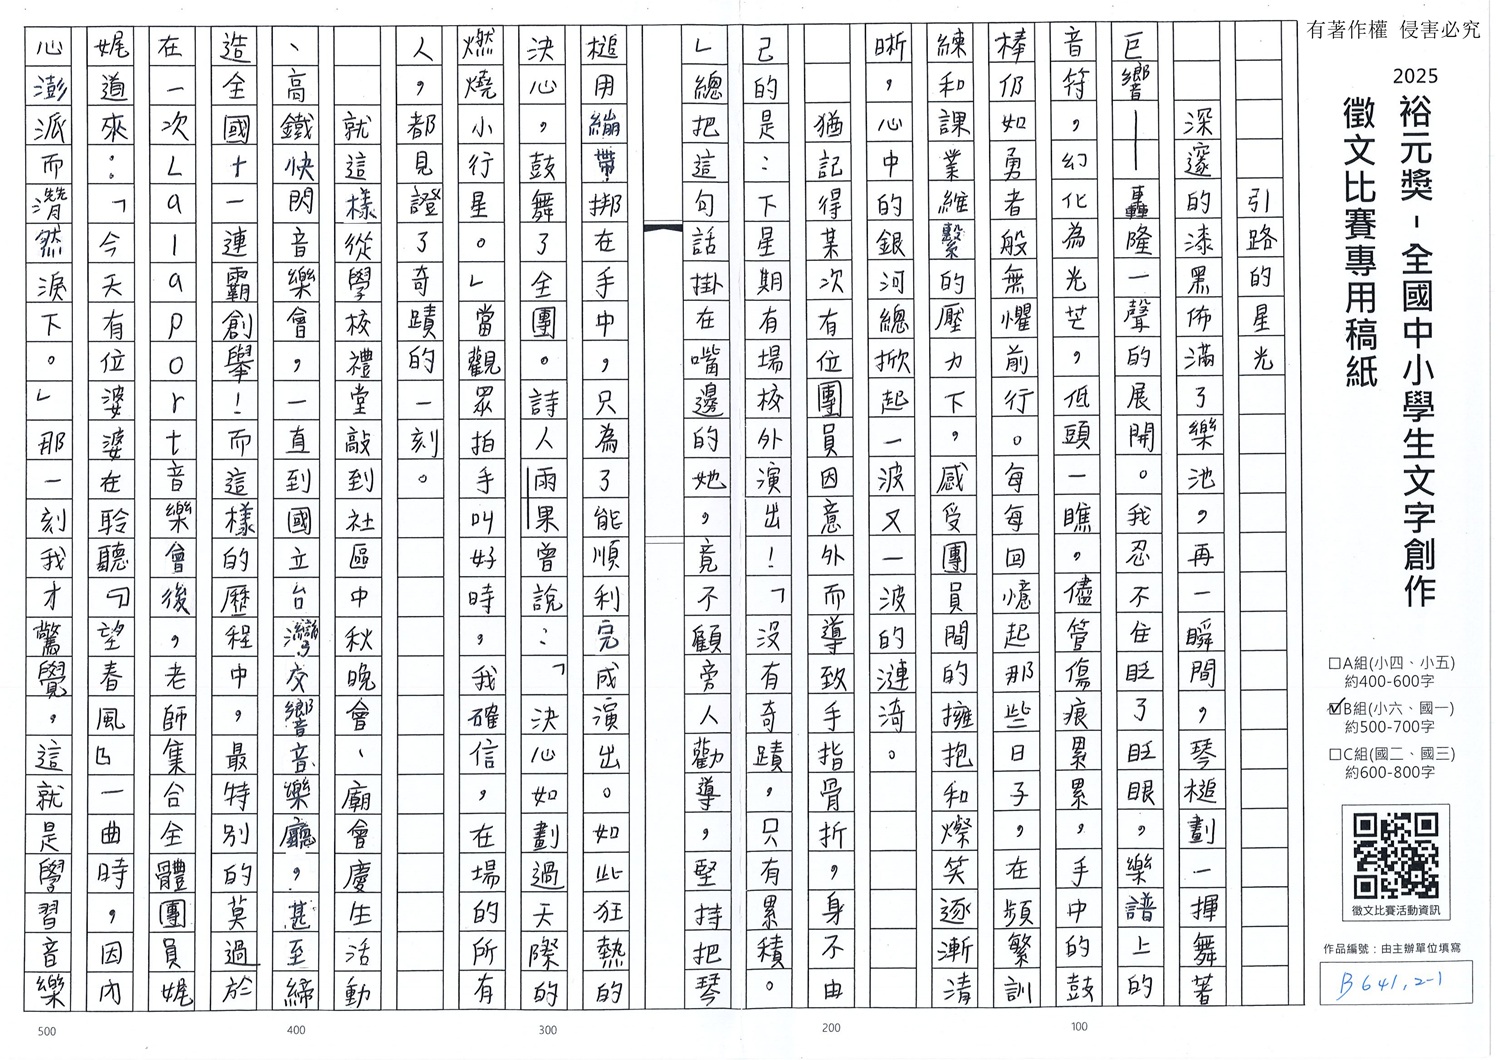 有著作權 侵害必究
2025
裕元獎-全國中小學生文字創作
徵文比賽專用稿紙
□A組(小四、小五)
約400-600字
☑B組(小六、國一)
約500-700字
□C組(國二、國三)
約600-800字
徵文比賽活動資訊
作品編號：由主辦單位填寫
B641,2-1
引路的星光
深邃的漆黑佈滿了樂池，再一瞬間，琴槌劃一揮舞著
巨響—轟隆一聲的展開。我忍不住眨了眨眼，樂譜上的
音符，幻化為光芒，低頭一瞧，儘管傷痕累累，手中的鼓
棒仍如勇者般無懼前行。每每回憶起那些日子，在頻繁訓
練和課業維繫的壓力下，感受團員間的擁抱和燦笑逐漸清
晰，心中的銀河總掀起一波又一波的漣漪。
猶記得某次有位團員因意外而導致手指骨折，身不由
己的是：下星期有場校外演出！「沒有奇蹟，只有累積。
」總把這句話掛在嘴邊的她，竟不顧旁人勸導，堅持把琴
槌用繃帶綁在手中，只為了能順利完成演出。如此狂熱的
決心，鼓舞了全團。詩人雨果曾說：「決心如劃過天際的
燃燒小行星。」當觀眾拍手叫好時，我確信，在場的所有
人，都見證了奇蹟的一刻。
就這樣從學校禮堂敲到社區中秋晚會、廟會慶生活動
、高鐵快閃音樂會，一直到國立台灣交響音樂廳，甚至締
造全國十一連霸創舉！而這樣的歷程中，最特別的莫過於
在一次Lalaport音樂會後，老師集合全體團員娓
娓道來：「今天有位婆婆在聆聽『望春風』一曲時，因內
心澎湃而潸然淚下。」那一刻我才驚覺，這就是學習音樂
100
200
300
400
500